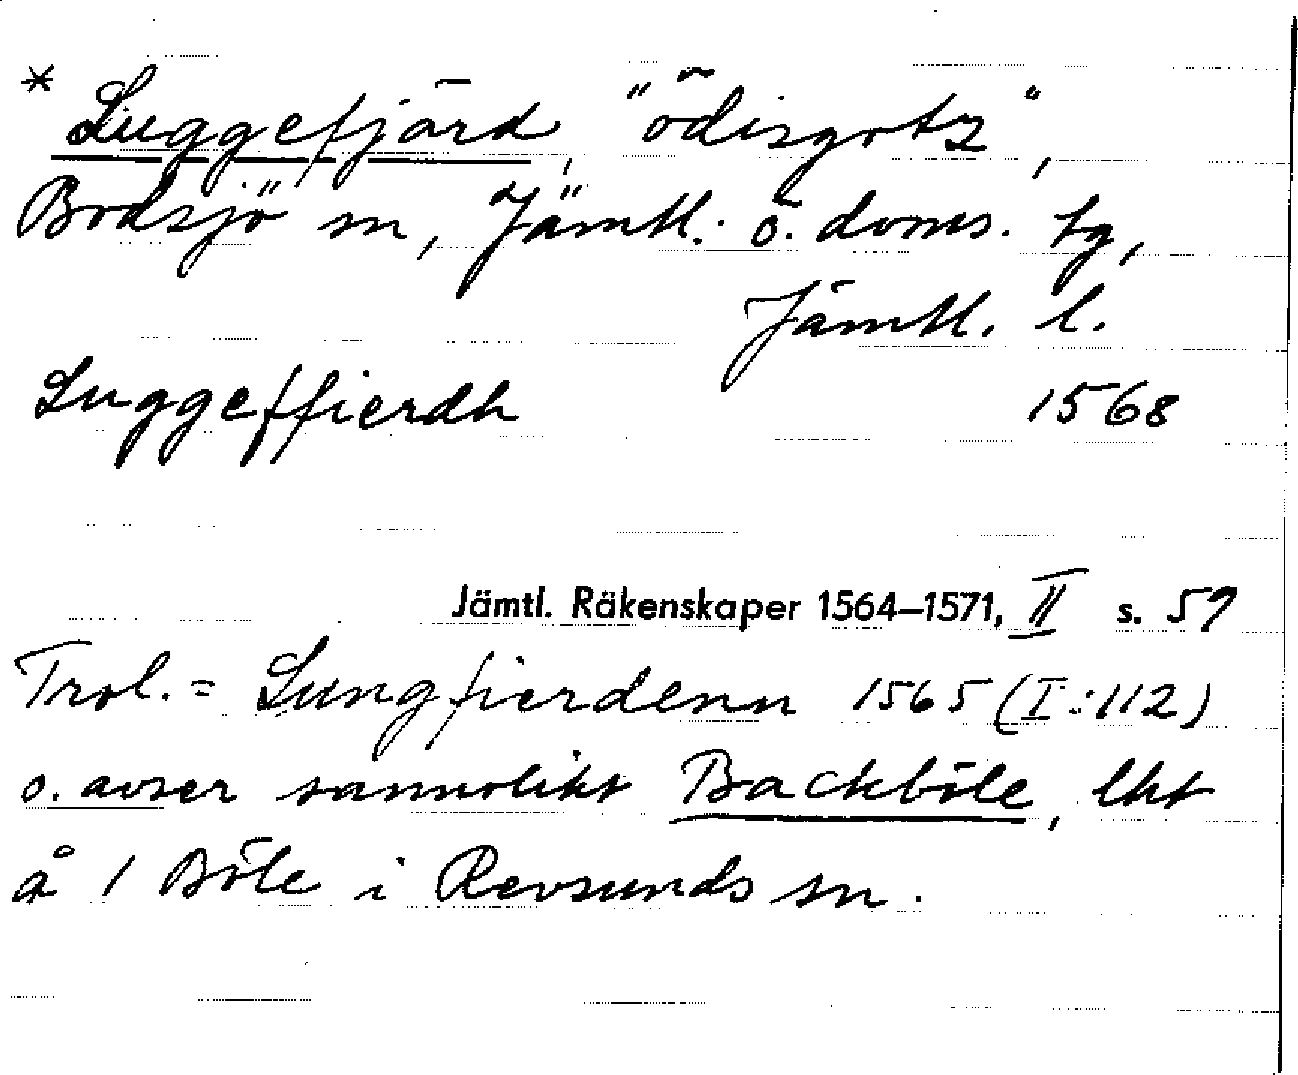 * Luggefjärd, "ödisgotz",
Bodsjö sn, Jämtl. ö. doms. tg,
Jämtl. l.
Luggeffierdh 1568
Jämtl. Räkenskaper 1564–1571, II s. 59
Trol. = Lungfierdenn 1565 (I:112)
o. avser sannolikt Backböle, lht
å 1 Böle i Revsunds sn.